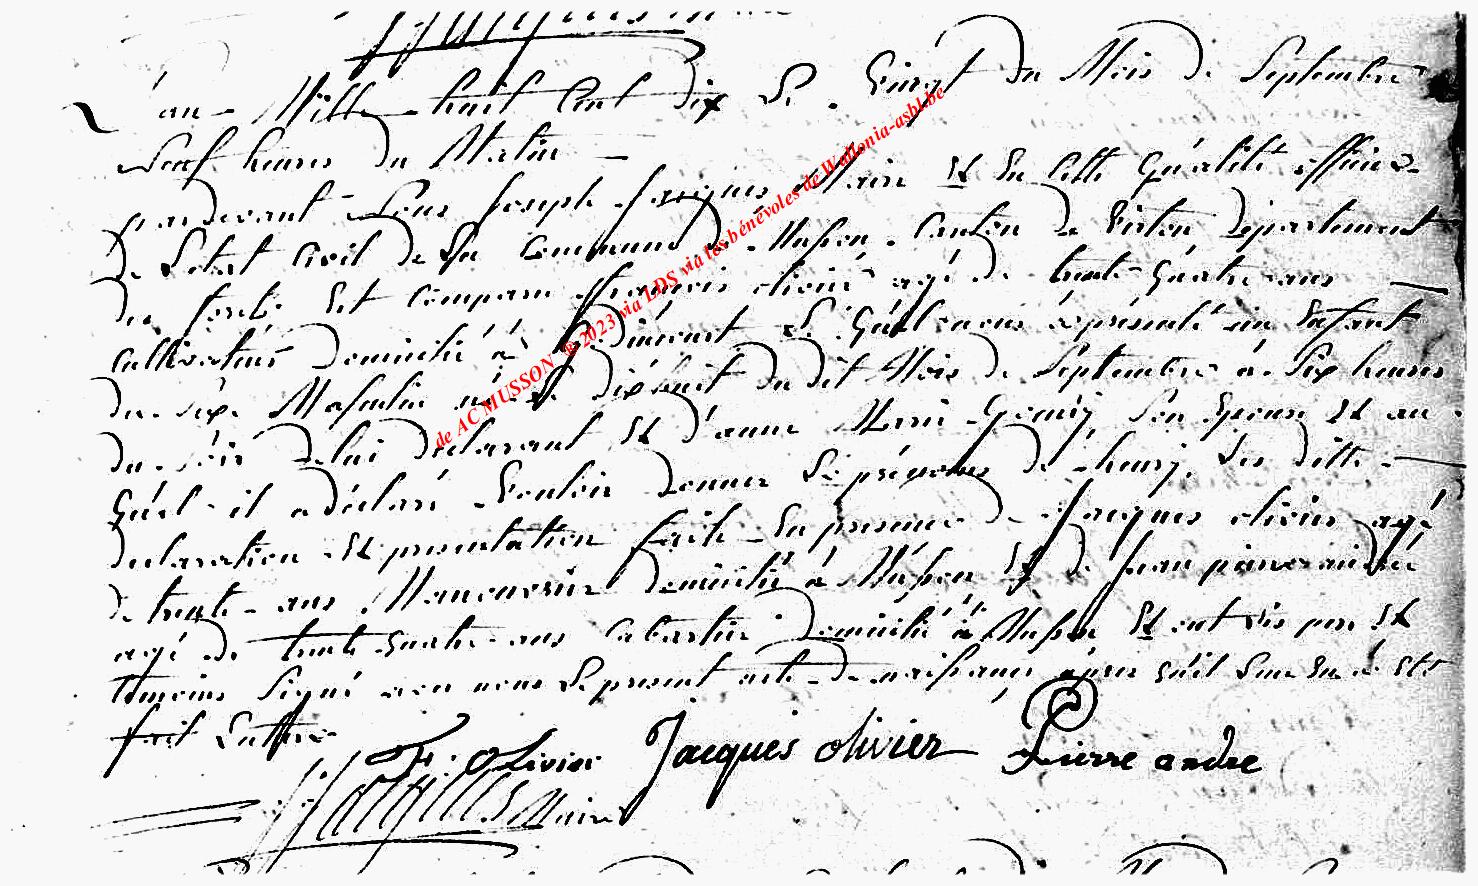 L'an Mille huit Cent dix Le Vingt du Mois de Septembre
Neuf heures du Matin
pardevant Nous Joseph Jacques Maire Et En Cette Qualité officier
de L'etat Civil de La Commune de Musson Canton de Virton departement
des forets Est Comparu françois olivié agé de trente Quatre ans
Cultivateur domicilié à Lequel nous à présenté un Enfant
du Séxe Masculin né Le dixhuit du dit Mois de Septembre à Six heures
du Soir de lui déclarant Et d'anne Marie Goury Son Epouse Et au
Quel il a déclaré Vouloir donner Le prénoms de henry Les ditte
declaration Et presentation faite En presence de Jacques olivier agé
de trente ans Manouvrier domicilié à Musson Et de Jean pierre andré
agé de trente Quatre ans Cabartier domicilié à Musson Et ont Les per Et
temoins Signé avec nous Le present acte de naissance après Qu'il Leur En à Eté
fait Lecture
F. Olivier Jacques olivier Pierre andre
Maire
de AC MUSSON ® 2023 via LDS via les bénévoles de Wallonia-asbl.be